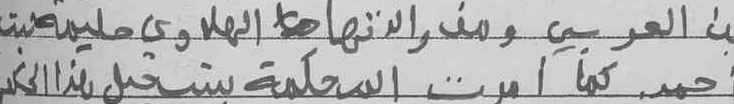 بن العربي ومن والدتها الهلاوي حليمة بنت
احمد. كما أمرت المحكمة بتسجيل هذا الحكم